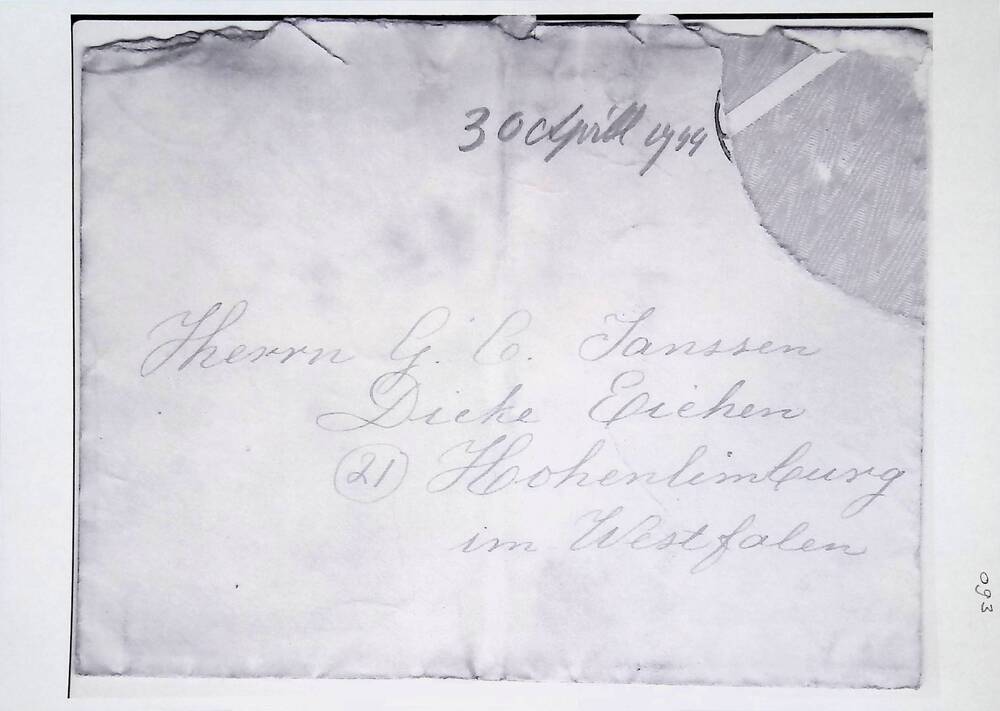 30 Aprill 1944
Herrn G. C. Janssen
Dicke Eichen
21 Hohenlimburg
im Westfalen
093